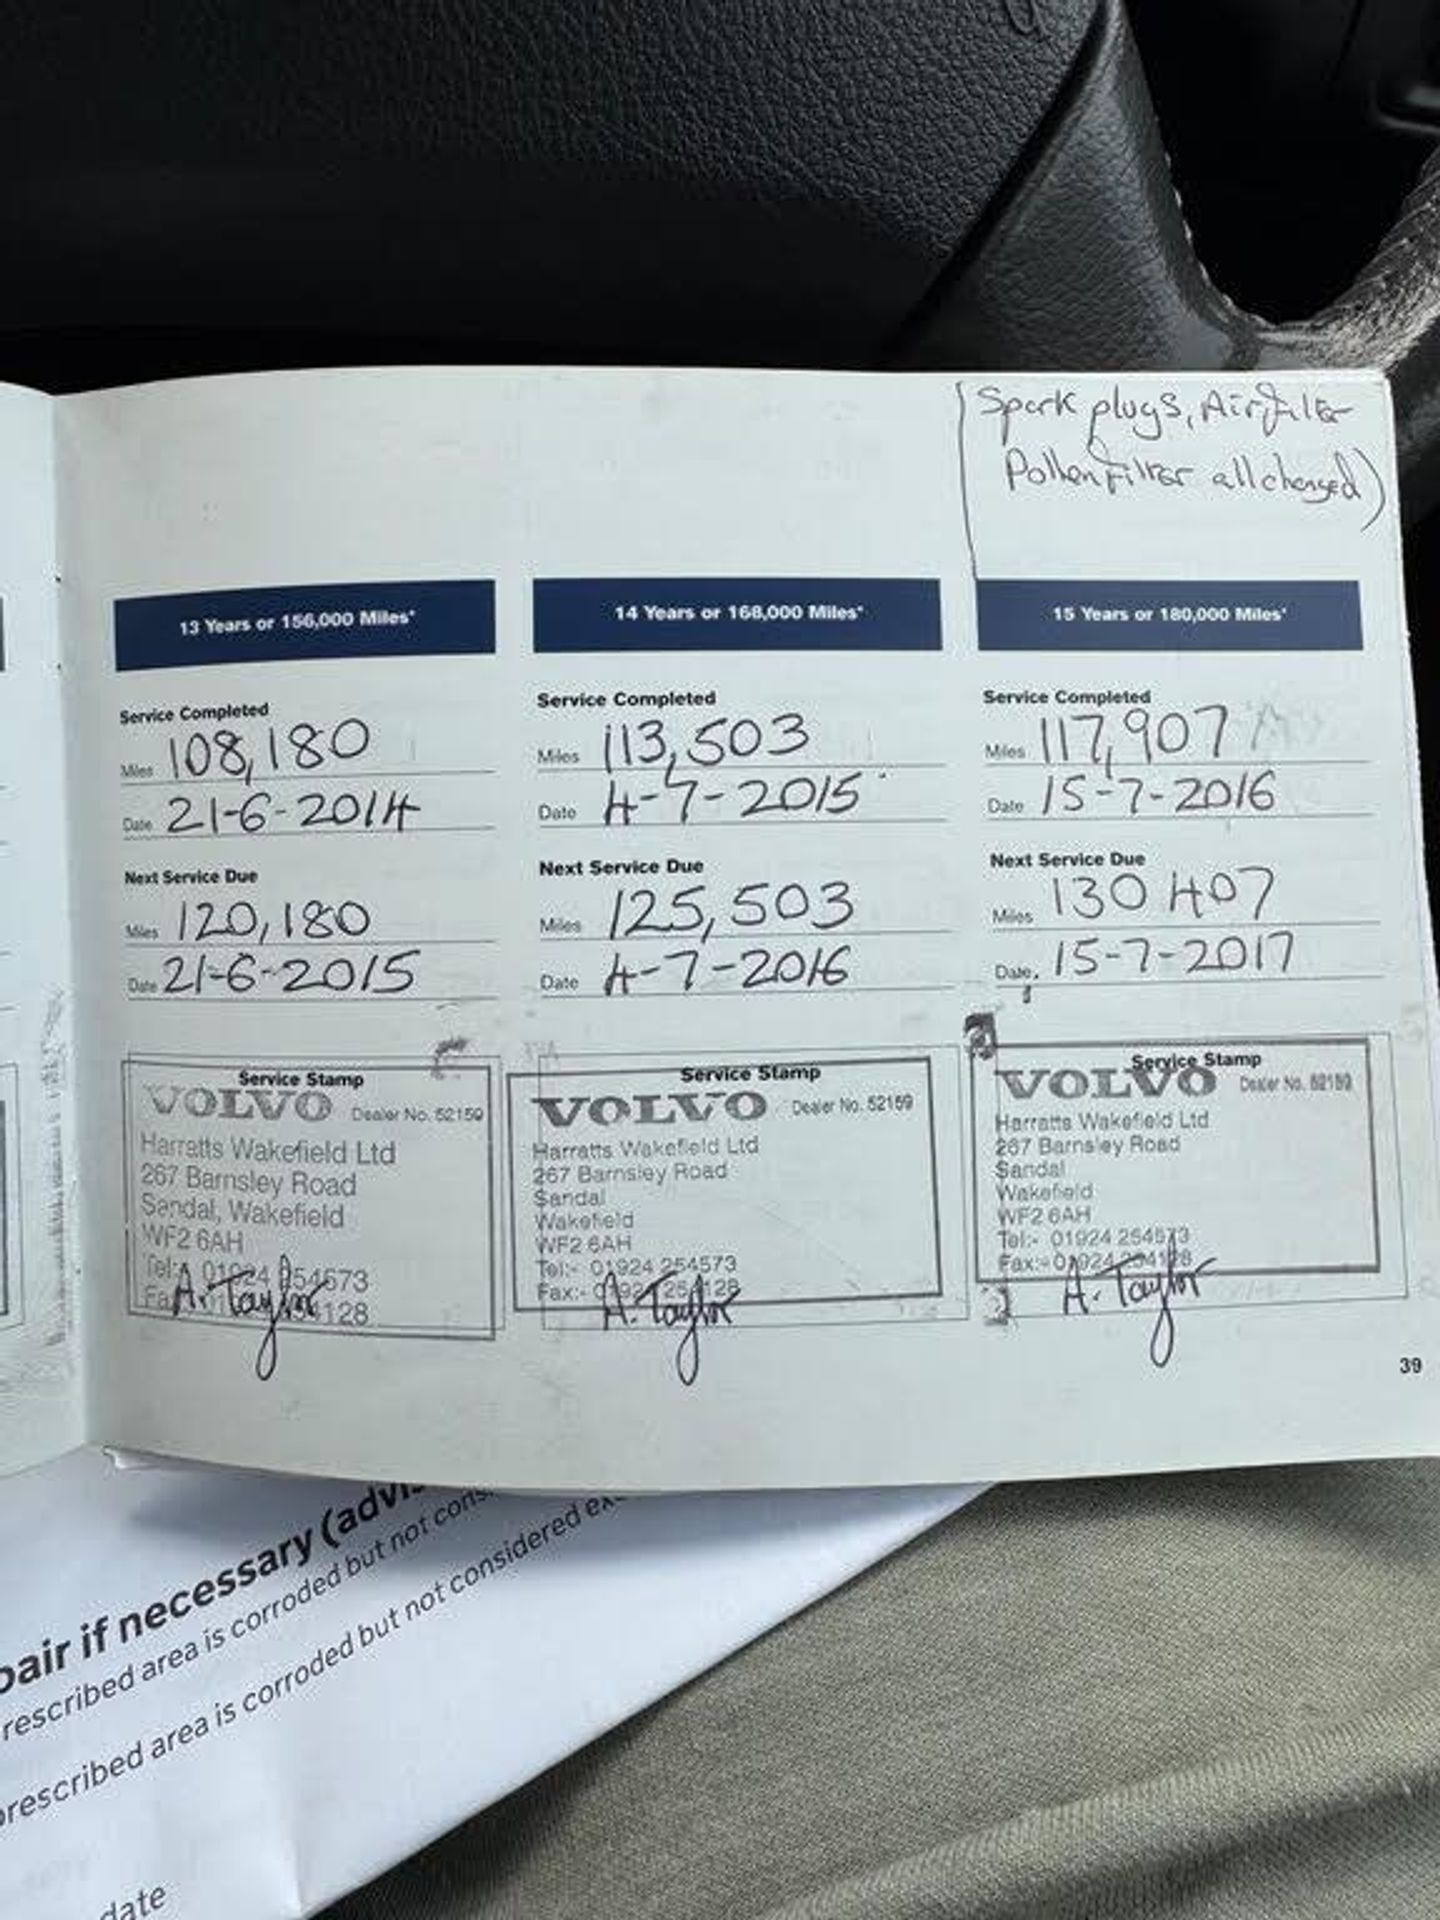 Spark plugs, Air filter
Pollen Filter all changed)
13 Years or 156,000 Miles*
Service Completed
Miles 108,180
Date 21-6-2014
Next Service Due
Miles 120,180
Date 21-6-2015
Service Stamp
VOLVO Dealer No. 52159
Harratts Wakefield Ltd
267 Barnsley Road
Sandal, Wakefield
WF2 6AH
Tel:- 01924 254573
128
A. Taylor
14 Years or 168,000 Miles*
Service Completed
Miles 113,503
Date 4-7-2015
Next Service Due
Miles 125,503
Date 4-7-2016
Service Stamp
VOLVO Dealer No. 52159
Harratts Wakefield Ltd
267 Barnsley Road
Sandal
Wakefield
WF2 6AH
Tel:- 01924 254573
Fax:- 01924 254128
A. Taylor
15 Years or 180,000 Miles*
Service Completed
Miles 117,907
Date 15-7-2016
Next Service Due
Miles 130 407
Date 15-7-2017
Service Stamp
VOLVO Dealer No. 52159
Harratts Wakefield Ltd
267 Barnsley Road
Sandal
Wakefield
WF2 6AH
Tel:- 01924 254573
Fax:- 01924 254128
A. Taylor
39
pair if necessary (advis
rescribed area is corroded but not cons
prescribed area is corroded but not considered ex
date